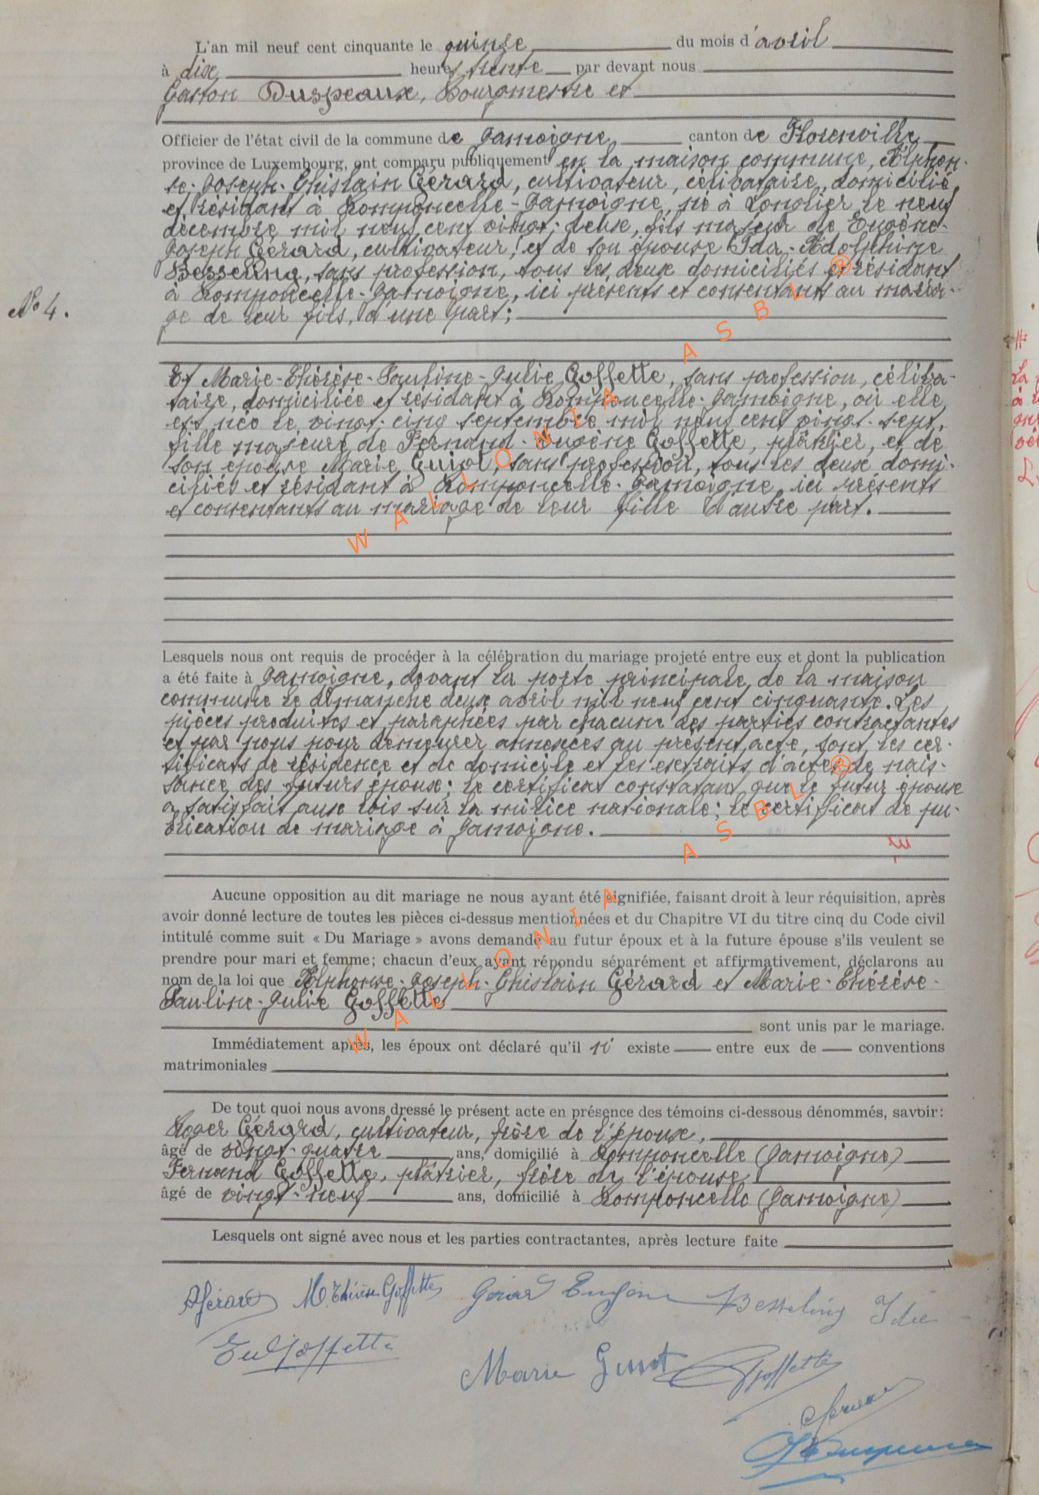 L'an mil neuf cent cinquante le quinze du mois d'avril
à dix heures trente par devant nous
Gaston Duspeaux, Bourgmestre et
Officier de l'état civil de la commune de Jamoigne canton de Florenville
province de Luxembourg, ont comparu publiquement en la maison commune, Alphon-
se-Joseph-Ghislain Gérard, cultivateur, célibataire, domicilié
et résidant à Romponcelle-Jamoigne, né à Longlier le neuf
décembre mil neuf cent vingt-deux, fils majeur de Eugène-
Joseph Gérard, cultivateur, et de son épouse Ida-Adolphine
Besseling, sans profession, tous les deux domiciliés et résidant
à Romponcelle-Jamoigne, ici présents et consentants au maria-
N° 4.
ge de leur fils, d'une part;
Et Marie-Thérèse-Pauline-Julie Goffette, sans profession, céliba-
taire, domiciliée et résidant à Romponcelle-Jamoigne, où elle
est née le vingt-cinq septembre mil neuf cent vingt-sept,
fille majeure de Fernand-Eugène Goffette, plâtrier, et de
son épouse Marie Guiot, sans profession, tous les deux domi-
ciliés et résidant à Romponcelle-Jamoigne, ici présents
et consentants au mariage de leur fille d'autre part.
Lesquels nous ont requis de procéder à la célébration du mariage projeté entre eux et dont la publication
a été faite à Jamoigne, devant la porte principale de la maison
commune le dimanche deux avril mil neuf cent cinquante. Les
pièces produites et paraphées par chacune des parties contractantes
et par nous pour demeurer annexées au présent acte, sont les cer-
tificats de résidence et de domicile et les extraits d'actes de nais-
sance des futurs époux; le certificat constatant que le futur époux
a satisfait aux lois sur la milice nationale; le certificat de pu-
blication de mariage à Jamoigne.
Aucune opposition au dit mariage ne nous ayant été signifiée, faisant droit à leur réquisition, après
avoir donné lecture de toutes les pièces ci-dessus mentionnées et du Chapitre VI du titre cinq du Code civil
intitulé comme suit « Du Mariage » avons demandé au futur époux et à la future épouse s'ils veulent se
prendre pour mari et femme; chacun d'eux ayant répondu séparément et affirmativement, déclarons au
nom de la loi que Alphonse-Joseph-Ghislain Gérard et Marie-Thérèse-
Pauline-Julie Goffette
sont unis par le mariage.
Immédiatement après, les époux ont déclaré qu'il n'existe entre eux de conventions
matrimoniales
De tout quoi nous avons dressé le présent acte en présence des témoins ci-dessous dénommés, savoir:
Roger Gérard, cultivateur, frère de l'époux,
âgé de vingt-quatre ans, domicilié à Romponcelle (Jamoigne)
Fernand Goffette, plâtrier, frère de l'épouse,
âgé de vingt-neuf ans, domicilié à Romponcelle (Jamoigne)
Lesquels ont signé avec nous et les parties contractantes, après lecture faite
AGérard M.Thérèse Goffette Gérard Eugène Besseling Ida
Goffette
Marie Guiot Goffette
Gérard
Duspeaux
WALLONIA ASBL ®
WALLONIA ASBL ®